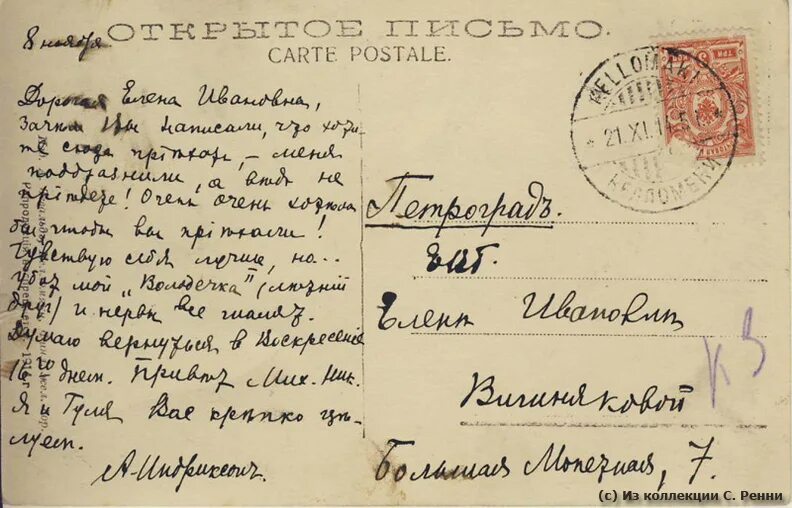 ОТКРЫТОЕ ПИСЬМО.
CARTE POSTALE.
8 ноября
Дорогая Елена Ивановна,
Зачѣм Вы написали, что хоти-
те сюда пріѣхать, – меня
поддразнили, а вѣдь не
пріѣдете! Очень очень
бы чтобы вы пріѣхали!
Чувствую себя лучше, но...
мой „Володечка"
друг) и нервы все шалят.
Думаю вернуться в Воскресенiе
16го днем. Привѣт Мих. Ник.
Я и Гуля Вас крѣпко цѣ-
луем.
KELLOMÄKI
* 21.XI.14 *
КЕЛЛОМЯКИ
Петроградъ.
ЕВБ.
Еленѣ Ивановнѣ
Вишняковой
Большая Монетная, 7.
КВ
(с) Из коллекции С. Ренни